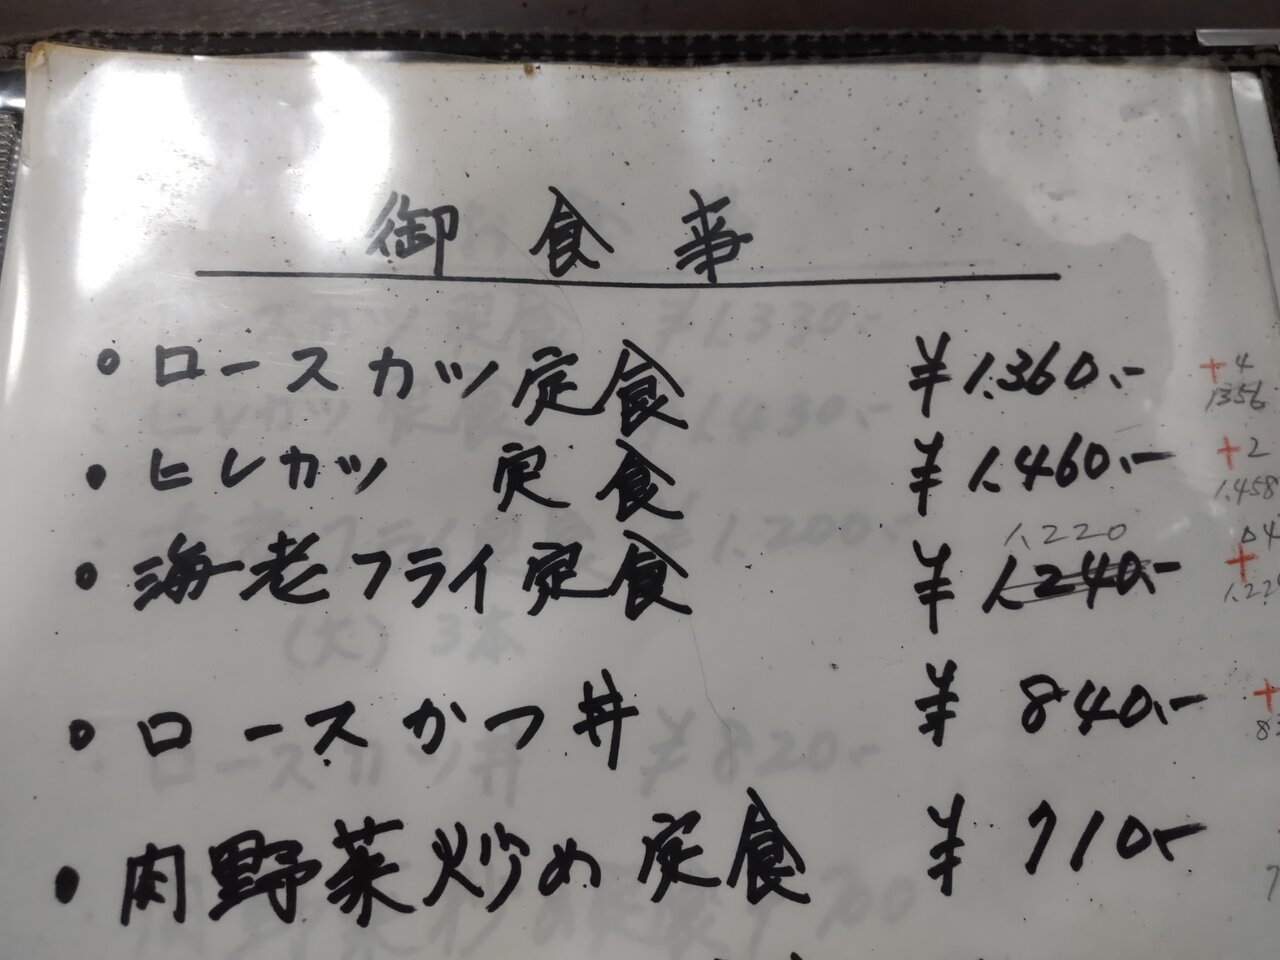 御食事
・ロースカツ定食 ¥1,360.- +4
1356
・ヒレカツ 定食 ¥1,460.- +2
1,458
1,220
・海老フライ定食 ¥1,240.- +
・ロースかつ丼 ¥840.- +
・肉野菜炒め定食 ¥710-